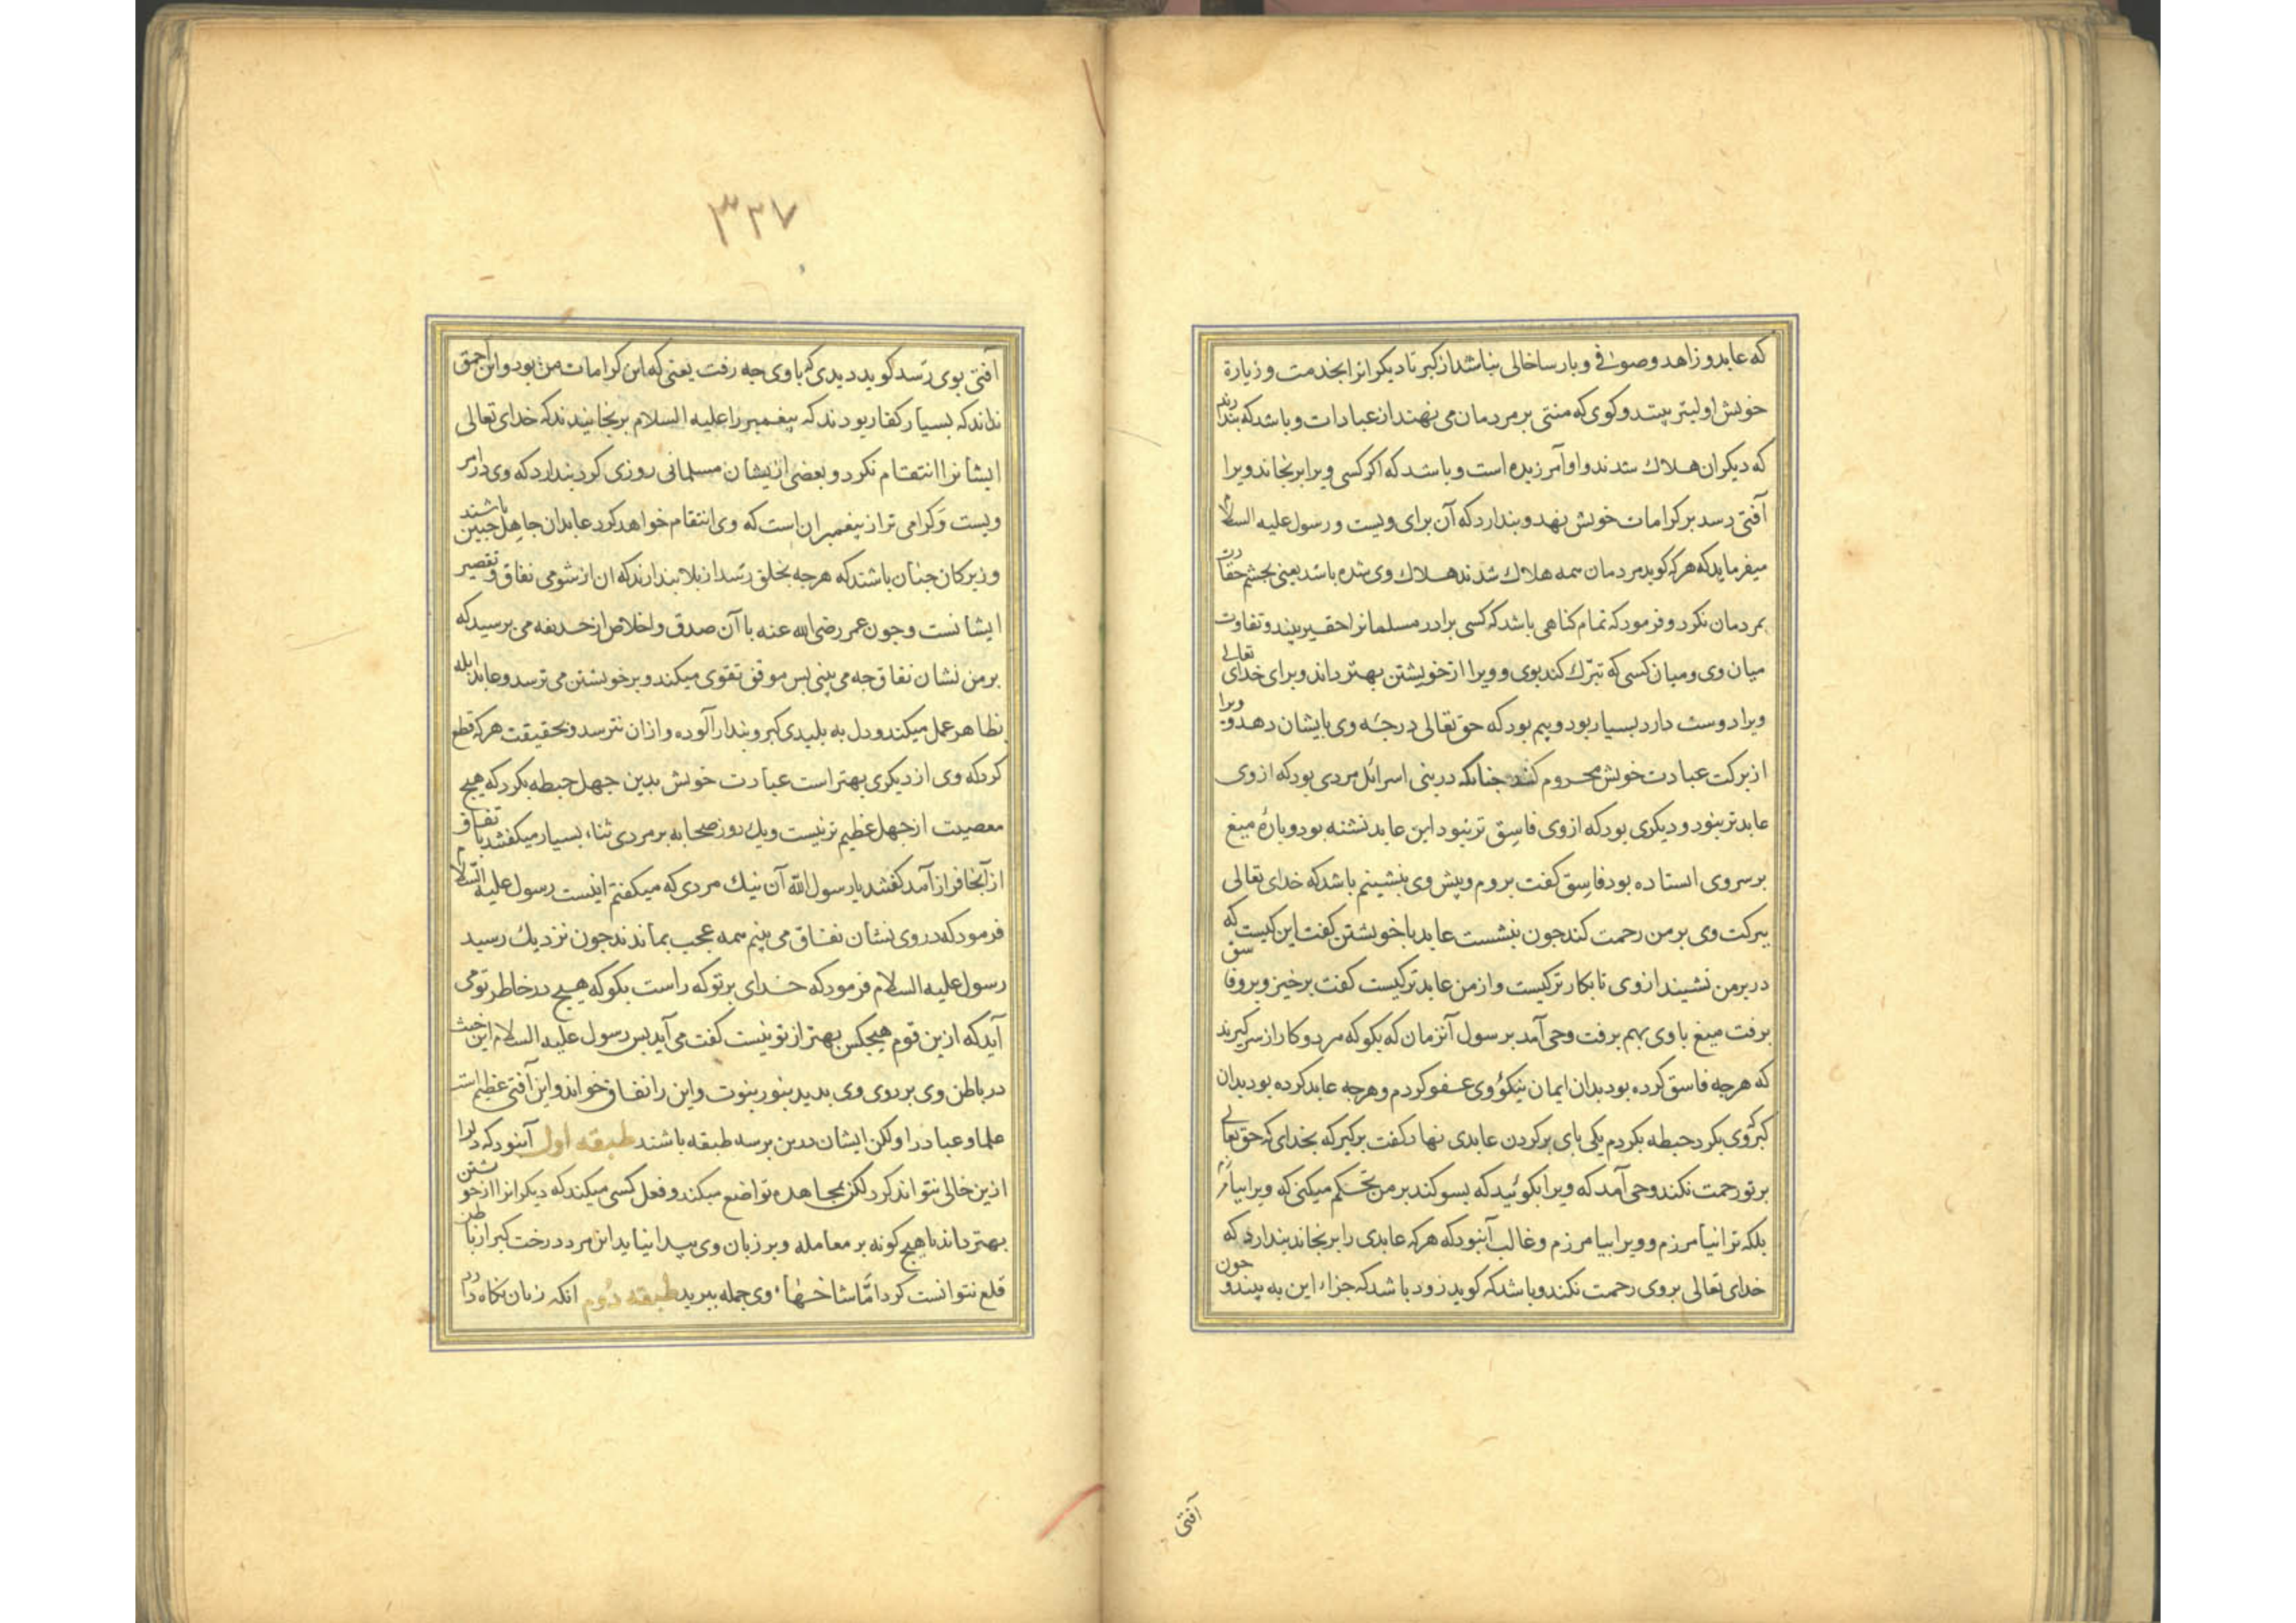 که عابد و زاهد و صوفی و بارسا خالی نباشد از کبر تا دیکرانرا بخدمت و زیارة
خویش اولیتر بینند و کوی که منتی بر مردمان می نهند از عبادات و باشد که بندارند
که دیکران هلاك شدند و او آمرزیده است و باشد که اکر کسی ویرا برنجاند و یرا
آفتی رسد بر کرامات خویش نهد و بندارد که آن برای ویست و رسول علیه السلام
میفرماید که هر که کوید مردمان همه هلاك شدند هلاك وی شده باشد یعنی بجشم حقارت
بمردمان نکرد و فرمود که تمام کناهی باشد که کسی برادر مسلمانرا حقیر بیند و تفاوت
میان وی و میان کسی که تبرّك کند بوی و ویرا از خویشتن بهتر داند و برای خدای تعالی
ویرا دوست دارد بسیار بود و بیم بود که حق تعالی درجهٔ وی بایشان دهد و ویرا
از برکت عبادت خویش محروم کند جنانکه در بنی اسرائل مردی بود که از وی
عابدتر نبود و دیکری بود که ازوی فاسق تر نبود این عابد نشته بود و بارهٔ میغ
بر سر وی استاده بود فاسق کفت بروم و پیش وی بنشینم باشد که خدای تعالی
ببرکت وی بر من رحمت کند جون بنشست عابد با خویشتن کفت این کیست که
در بر من نشیند از وی نابکارتر کیست و از من عابدتر کیست کفت برخیز و برو فاسق
برفت میغ با وی بهم برفت وحی آمد برسول آنزمان که بکو که هر دو کار از سر کیرند
که هرجه فاسق کرده بود بدان ایمان نیکوُ وی عفو کردم و هرجه عابد کرده بود بدان
کبر که وی بکرد حبطه بکردم یکی بای بر کردن عابدی نهاد کفت بر کیر که بخدای که حق تعالی
بر تو رحمت نکند وحی آمد که ویرا بکوئید که بسوکند بر من تحکم میکنی که ویرا نیامرزم
بلکه ترا نیامرزم و ویرا بیامرزم و غالب آنبود که هر که عابدی را برنجاند بندارد که
خدای تعالی بروی رحمت نکند و باشد که کوید زود باشد که جزاء این به بیند و جون
آفتی
۳۳۷
آفتی بوی رسد کوید دیدی که با وی جه رفت یعنی که این کرامات من بود و این احمق
نداند که بسیار کفار بودند که پیغمبر را علیه السلام برنجانیدند که خدای تعالی
ایشانرا انتقام نکرد و بعضی از یشان مسلمانی روزی کرد بندارد که وی در امر
ویست و کرامی تر از پیغمبران است که وی انتقام خواهد کرد عابدان جاهل جنین باشند
و زیرکان جنان باشند که هرجه بخلق رسد از بلا بندارند که ان از شومی نفاق و تقصیر
ایشانست و جون عمر رضی الله عنه با آن صدق و اخلاص از حذیفه می برسید که
بر من نشان نفاق جه می بینی بس موقن تقوی میکند و بر خویشتن می ترسد و عابد ابله
بظاهر عمل میکند و دل به بلیدی کبر و بندار آلوده و از ان نترسد و بحقیقت هر که قطع
کرد که وی از دیکری بهتر است عبادت خویش بدین جهل حبطه بکرد که هیج
معصیت از جهل عظیم تر نیست و یك روز صحابه بر مردی ثناء بسیار میکفتند باتفاق
از آنجا فراز آمد کفتند یا رسول الله آن نیك مردی که میکفتم اینست رسول علیه السّلام
فرمود که در وی نشان نفاق می بینم همه عجب بماندند جون نزدیك رسید
رسول علیه السلام فرمود که خدای بر تو که راست بکو که هیج در خاطر تو می
آید که ازین قوم هیجکس بهتر از تو نیست کفت می آید بس رسول علیه السلام این خبث
در باطن وی بر روی وی بدید بنور نبوت و این را نفاق خواند و این آفتی عظیم است
علما و عباد را و لکن ایشان درین بر سه طبقه باشند طبقه اول آنبود که دلرا
ازین خالی نتواند کرد لکن بمجاهده تواضع میکند و فعل کسی میکند که دیکرانرا از خویشتن
بهتر داند تا هیج کونه بر معامله و بر زبان وی پیدا نیاید این مرد درخت کبر از باطن
قلع نتوانست کرد امّا شاخهاء وی جمله ببرید طبقه دوم آنکه زبان نکاه دارد